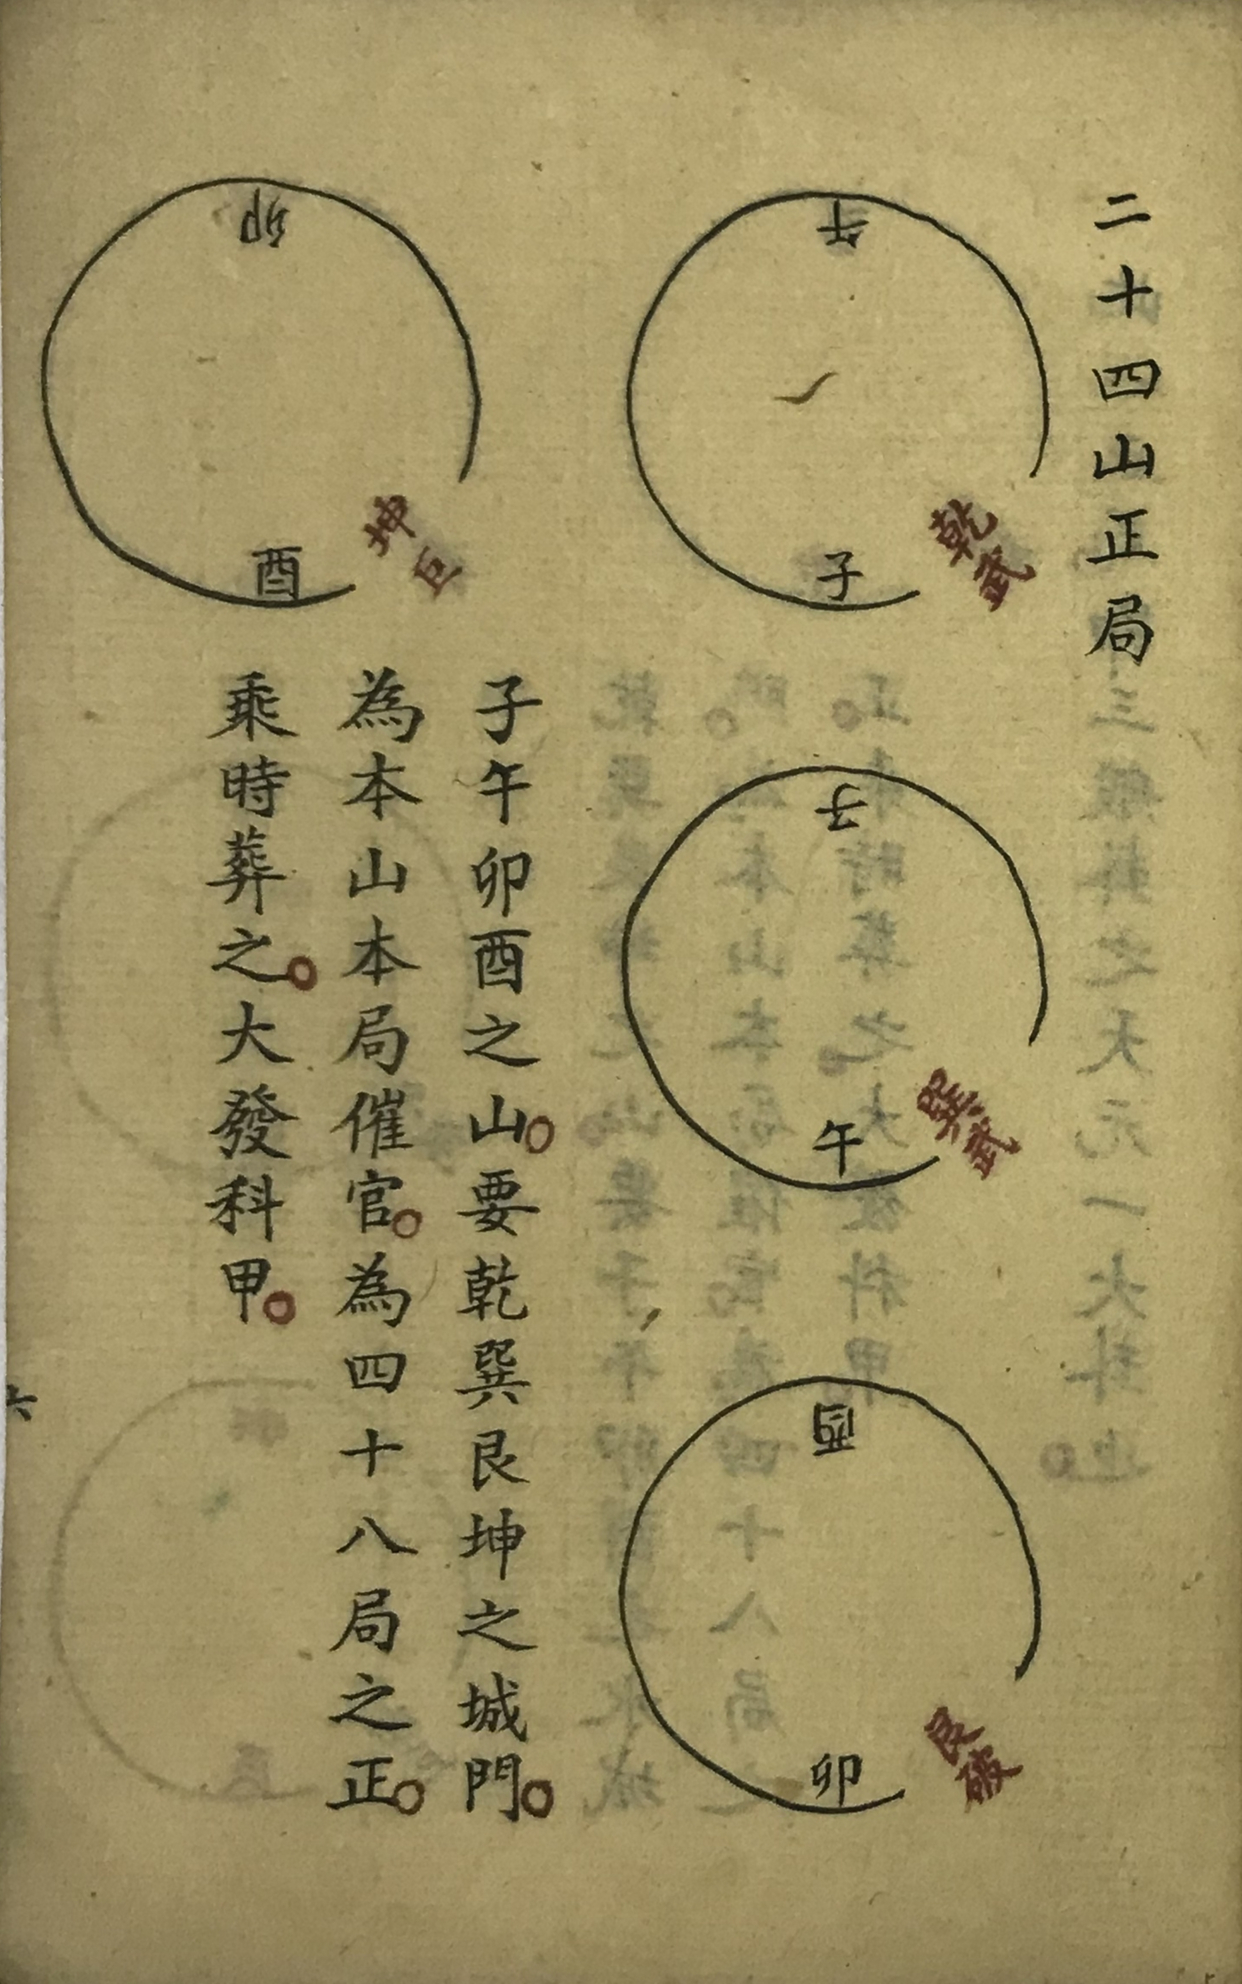 二十四山正局
午
子
乾武
子
午
巽武
酉
卯
艮破
卯
酉
坤巨
子午卯酉之山。要乾巽艮坤之城門。
為本山本局催官。為四十八局之正。
乘時葬之。大發科甲。
六